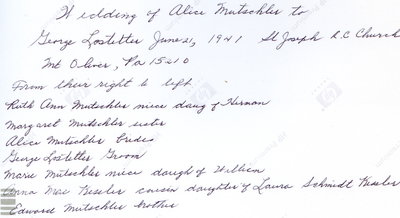 Wedding of Alice Mutschler to
George Lostetter June 21, 1941 St Joseph R.C Church
Mt Oliver, Pa 15210
From their right to left
Ruth Ann Mutschler niece daug of Herman
Margaret Mutschler sister
Alice Mutschler bride
George Lostetter Groom
Marie Mutschler niece daugh of William
Anna Mae Kessler cousin daughter of Laura Schmidt Kessler
Edward Mutschler brother